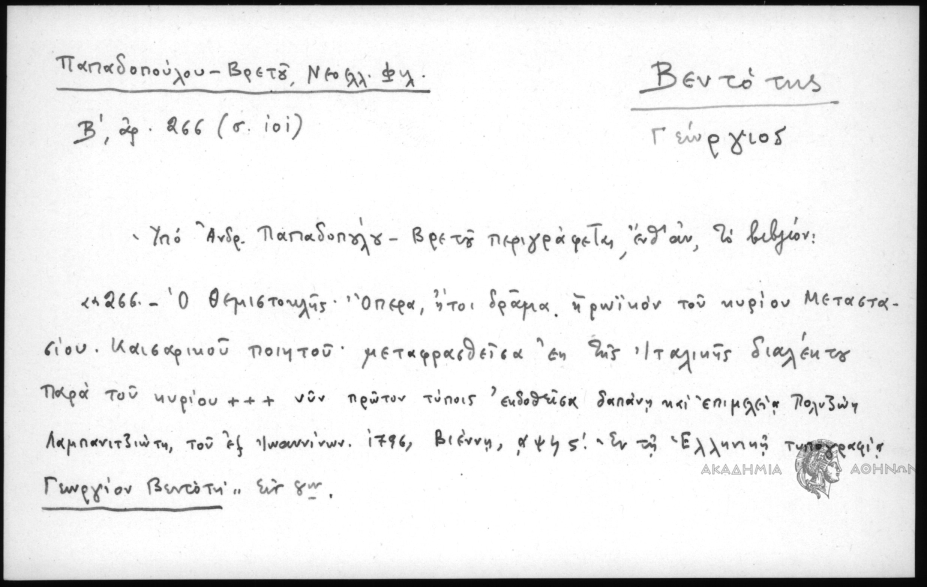 Παπαδοπούλου - Βρετοῦ, Νεοελλ. Φιλ.
Βεντότης
Β', ἀρ. 266 (σ. 101)
Γεώργιος
Ὑπό Ἀνδρ. Παπαδοπούλου - Βρετοῦ περιγράφεται, ἔνθ' ἀν., τό βιβλίον:
«266. - Ὁ Θεμιστοκλῆς. Ὄπερα, ἤτοι δρᾶμα ἡρωϊκόν τοῦ κυρίου Μεταστα-
σίου. Καισαρικοῦ ποιητοῦ· μεταφρασθεῖσα ἐκ τῆς Ἰταλικῆς διαλέκτου
παρά τοῦ κυρίου +++ νῦν πρῶτον τύποις ἐκδοθεῖσα δαπάνῃ καί ἐπιμελείᾳ Πολυζώη
Λαμπανιτζιώτη, τοῦ ἐξ Ἰωαννίνων. 1796, Βιέννῃ, αψϟς'. Ἐν τῇ Ἑλληνικῇ τυπογραφίᾳ
ΑΚΑΔΗΜΙΑ ΑΘΗΝΩΝ
Γεωργίου Βεντότη" εἰς 8ον.